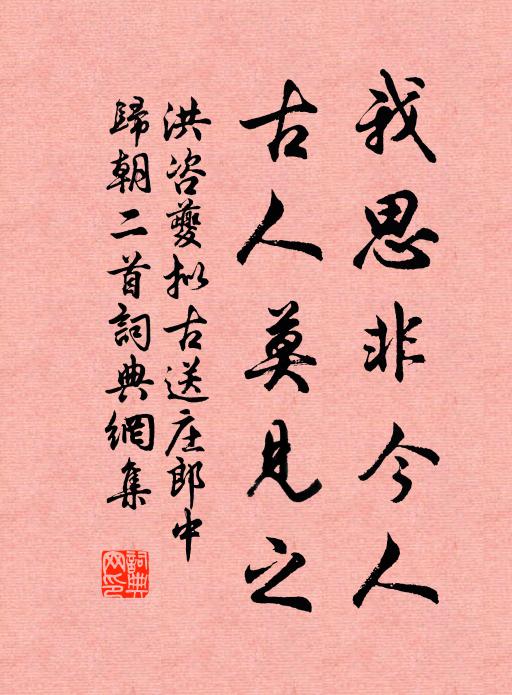 我思非今人
古人莫見之
洪咨夔拟古送庄郎中
歸朝二首詞典網集
詞典网印